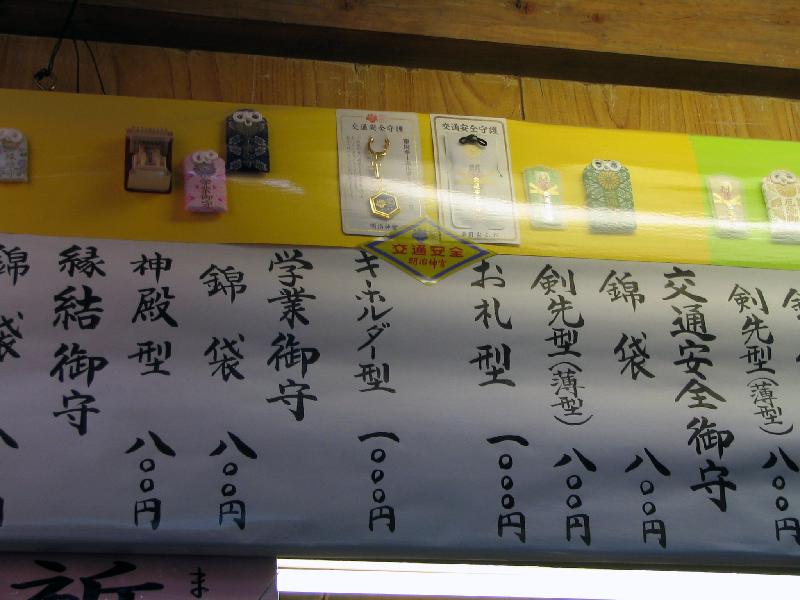 剣先型(薄型) 八〇〇円
交通安全御守
錦袋 八〇〇円
剣先型(薄型) 八〇〇円
お札型 一〇〇〇円
キーホルダー型 一〇〇〇円
学業御守
錦袋 八〇〇円
神殿型 八〇〇円
縁結御守
錦袋 八
交通安全守護
交通安全守護
明治神宮
交通安全
明治神宮
祈
ま